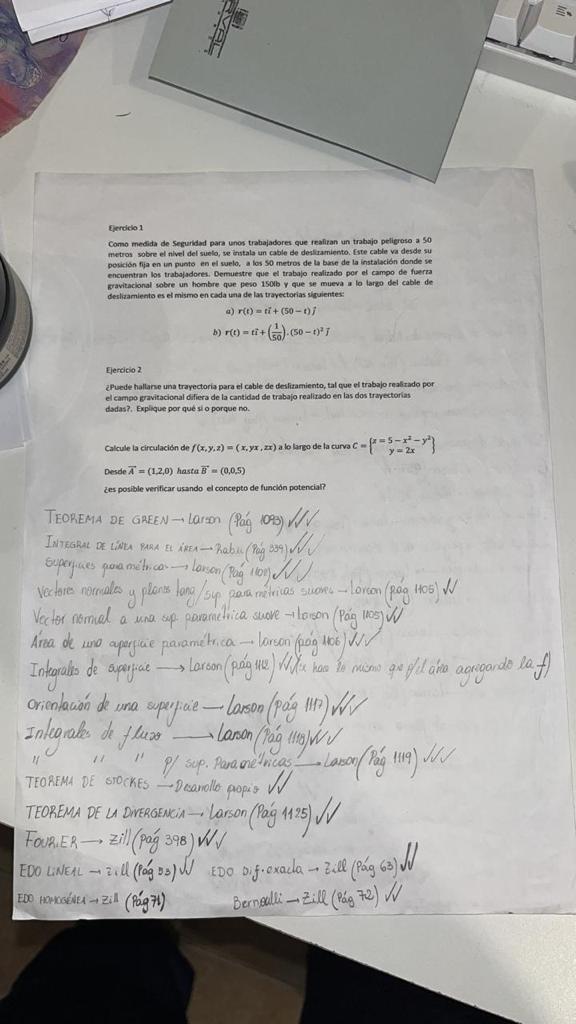 Ejercicio 1
Como medida de Seguridad para unos trabajadores que realizan un trabajo peligroso a 50
metros sobre el nivel del suelo, se instala un cable de deslizamiento. Este cable va desde su
posición fija en un punto en el suelo, a los 50 metros de la base de la instalación donde se
encuentran los trabajadores. Demuestre que el trabajo realizado por el campo de fuerza
gravitacional sobre un hombre que peso 150lb y que se mueva a lo largo del cable de
deslizamiento es el mismo en cada una de las trayectorias siguientes:
a) r(t) = tî + (50 − t) ĵ
b) r(t) = tî + (1/50).(50 − t)² ĵ
Ejercicio 2
¿Puede hallarse una trayectoria para el cable de deslizamiento, tal que el trabajo realizado por
el campo gravitacional difiera de la cantidad de trabajo realizado en las dos trayectorias
dadas?. Explique por qué si o porque no.
Calcule la circulación de f(x,y,z) = (x,yx,zx) a lo largo de la curva C = {z = 5 − x² − y²
y = 2x}
Desde A = (1,2,0) hasta B = (0,0,5)
¿es posible verificar usando el concepto de función potencial?
TEOREMA DE GREEN → Larson (Pág 1093) ✓✓✓
INTEGRAL DE LÍNEA PARA EL ÁREA → Rabu (Pág 339) ✓✓✓
Superficies paramétricas → Larson (Pág 1102) ✓✓✓
Vectores normales y planos tang/sup. paramétricas suaves → Larson (pág 1105) ✓✓
Vector normal a una sup. paramétrica suave → Larson (Pág 1105) ✓✓
Área de una superficie paramétrica → Larson (pág 1106) ✓✓✓
Integrales de superficie → Larson (pág 1112) ✓✓ (se hace lo mismo que p/el área agregando la f)
Orientación de una superficie → Larson (Pág 1117) ✓✓✓
Integrales de flujo → Larson (Pág 1118) ✓✓✓
" " " p/ sup. Paramétricas → Larson (Pág 1119) ✓✓✓
TEOREMA DE STOCKES → Desarrollo propio ✓✓
TEOREMA DE LA DIVERGENCIA → Larson (Pág 1125) ✓✓
FOURIER → Zill (Pág 398) ✓✓✓
EDO LINEAL → Zill (Pág 53) ✓✓ EDO Dif. exacta → Zill (Pág 63) ✓✓
EDO HOMOGÉNEA → Zill (Pág 71) Bernoulli → Zill (Pág 72) ✓✓